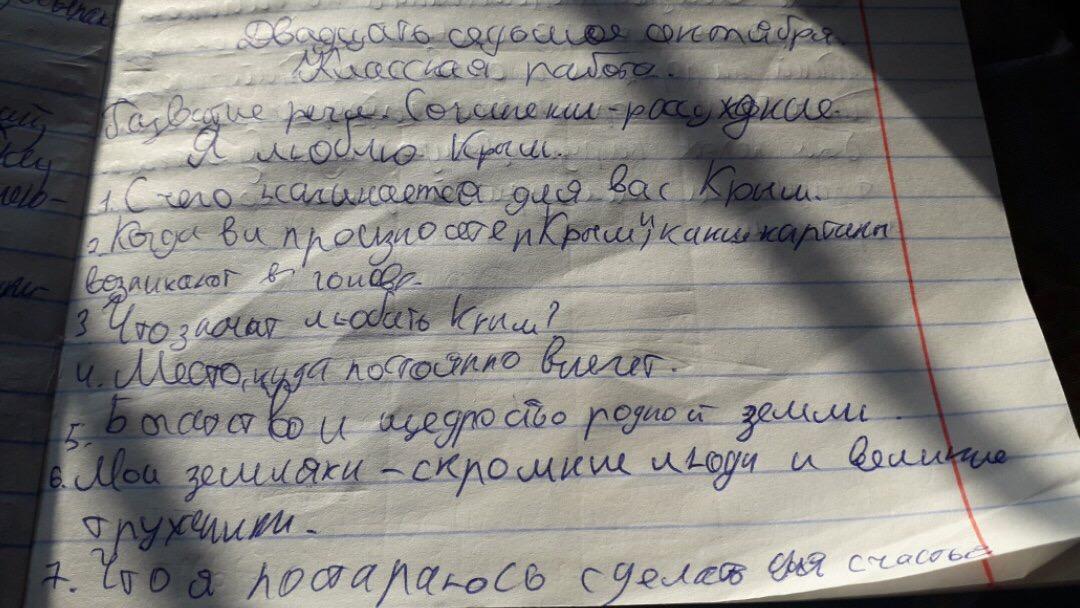 Двадцать седьмое сентября.
Классная работа.
Развитие речи. Сочинени-рассуждние.
Я люблю Крым.
1. С чего начинается для вас Крым.
2. Когда ви произносете "Крым", каки картины
возникают в голове.
3 Что значат любить Крым?
4. Место, куда постоянно влечет.
5. Богатство и щедроство родной земли.
6. Мои земляки - скромние люди и великие
труженики.
7. Что я постараюсь сделать для счастье